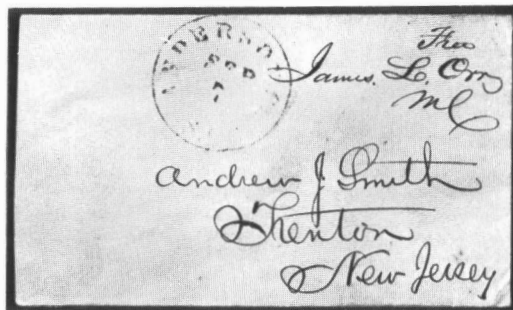 ANDERSON
7
Free
James. L. Orr
MC
Andrew J Smith
Trenton
New Jersey